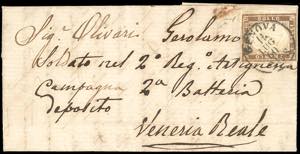 Sig. Olivari Gerolamo
Soldato nel 2° Reg. Artiglieria
Campagna 2a Batteria
Deposito
Veneria Reale
GENOVA